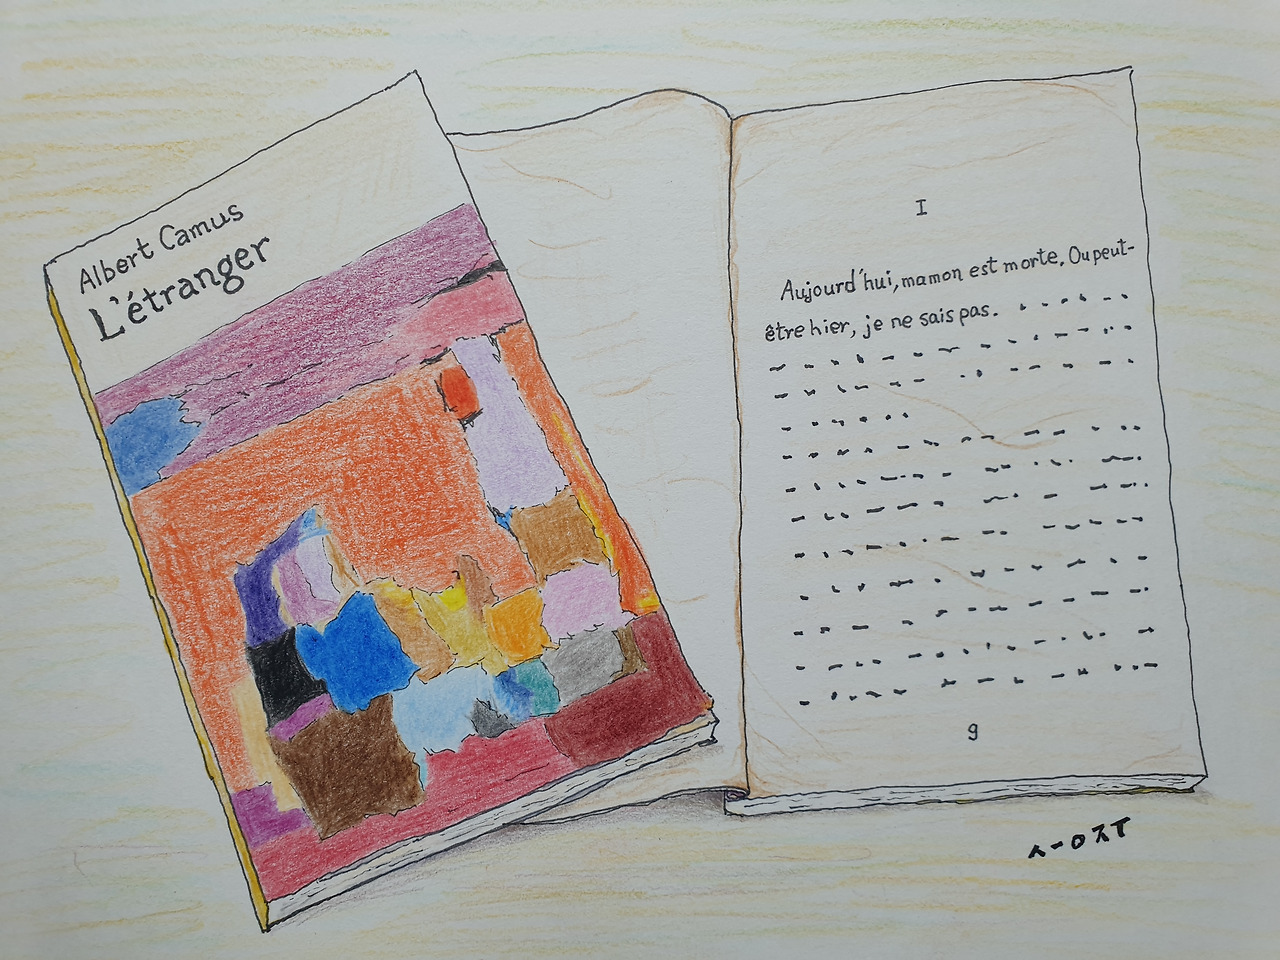 Albert Camus
L'étranger
I
Aujourd'hui, mamon est morte. Ou peut-
être hier, je ne sais pas.
9